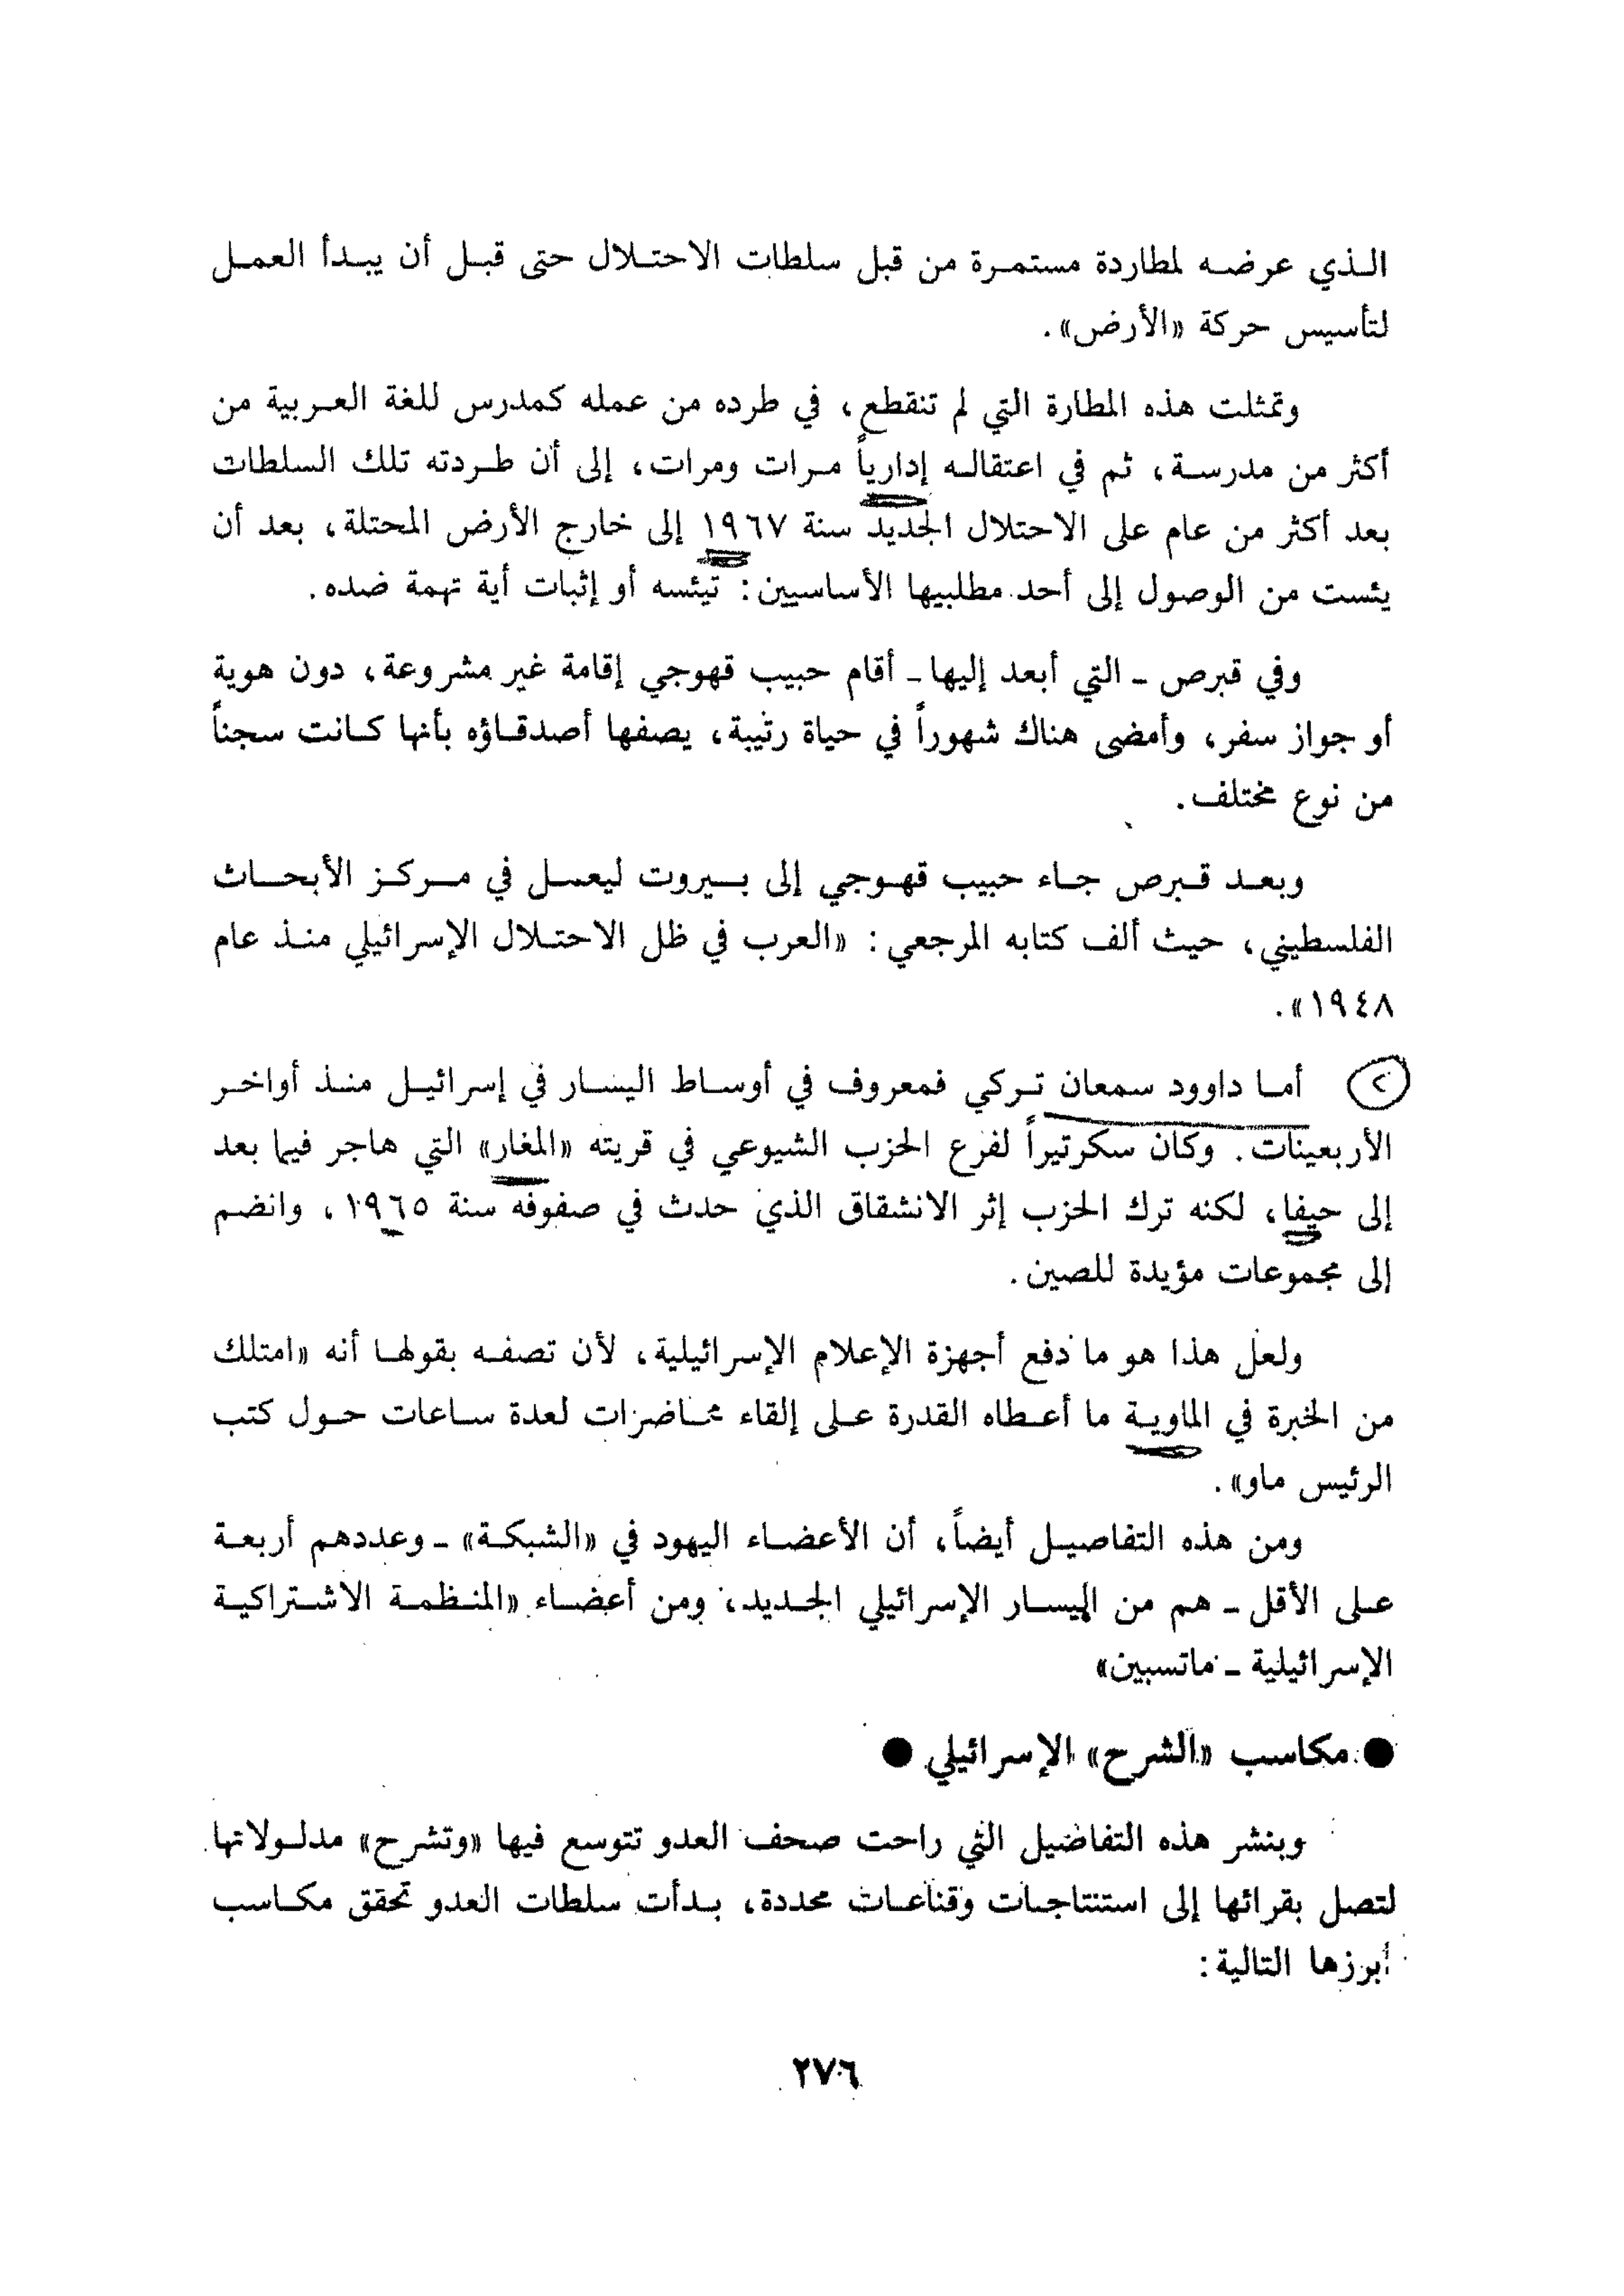 الذي عرضه لمطاردة مستمرة من قبل سلطات الاحتلال حتى قبل أن يبدأ العمل
لتأسيس حركة «الأرض».
وتمثلت هذه المطارة التي لم تنقطع، في طرده من عمله كمدرس للغة العربية من
أكثر من مدرسة، ثم في اعتقاله إدارياً مرات ومرات، إلى أن طردته تلك السلطات
بعد أكثر من عام على الاحتلال الجديد سنة ١٩٦٧ إلى خارج الأرض المحتلة، بعد أن
يئست من الوصول إلى أحد مطلبيها الأساسيين: تيئسه أو إثبات أية تهمة ضده.
وفي قبرص ـ التي أبعد إليها ـ أقام حبيب قهوجي إقامة غير مشروعة، دون هوية
أو جواز سفر، وأمضى هناك شهوراً في حياة رتيبة، يصفها أصدقاؤه بأنها كانت سجناً
من نوع مختلف.
وبعد قبرص جاء حبيب قهوجي إلى بيروت ليعمل في مركز الأبحاث
الفلسطيني، حيث ألف كتابه المرجعي: «العرب في ظل الاحتلال الإسرائيلي منذ عام
١٩٤٨».
٢ أما داوود سمعان تركي فمعروف في أوساط اليسار في إسرائيل منذ أواخر
الأربعينات. وكان سكرتيراً لفرع الحزب الشيوعي في قريته «المغار» التي هاجر فيما بعد
إلى حيفا، لكنه ترك الحزب إثر الانشقاق الذي حدث في صفوفه سنة ١٩٦٥، وانضم
إلى مجموعات مؤيدة للصين.
ولعل هذا هو ما دفع أجهزة الإعلام الإسرائيلية، لأن تصفه بقولها أنه «امتلك
من الخبرة في الماوية ما أعطاه القدرة على إلقاء محاضرات لعدة ساعات حول كتب
الرئيس ماو».
ومن هذه التفاصيل أيضاً، أن الأعضاء اليهود في «الشبكة» ـ وعددهم أربعة
على الأقل ـ هم من اليسار الإسرائيلي الجديد، ومن أعضاء «المنظمة الاشتراكية
الإسرائيلية ـ ماتسبين»
● مكاسب «الشرح» الإسرائيلي ●
وبنشر هذه التفاصيل التي راحت صحف العدو تتوسع فيها «وتشرح» مدلولاتها
لتصل بقرائها إلى استنتاجات وقناعات محددة، بدأت سلطات العدو تحقق مكاسب
أبرزها التالية:
٢٧٦